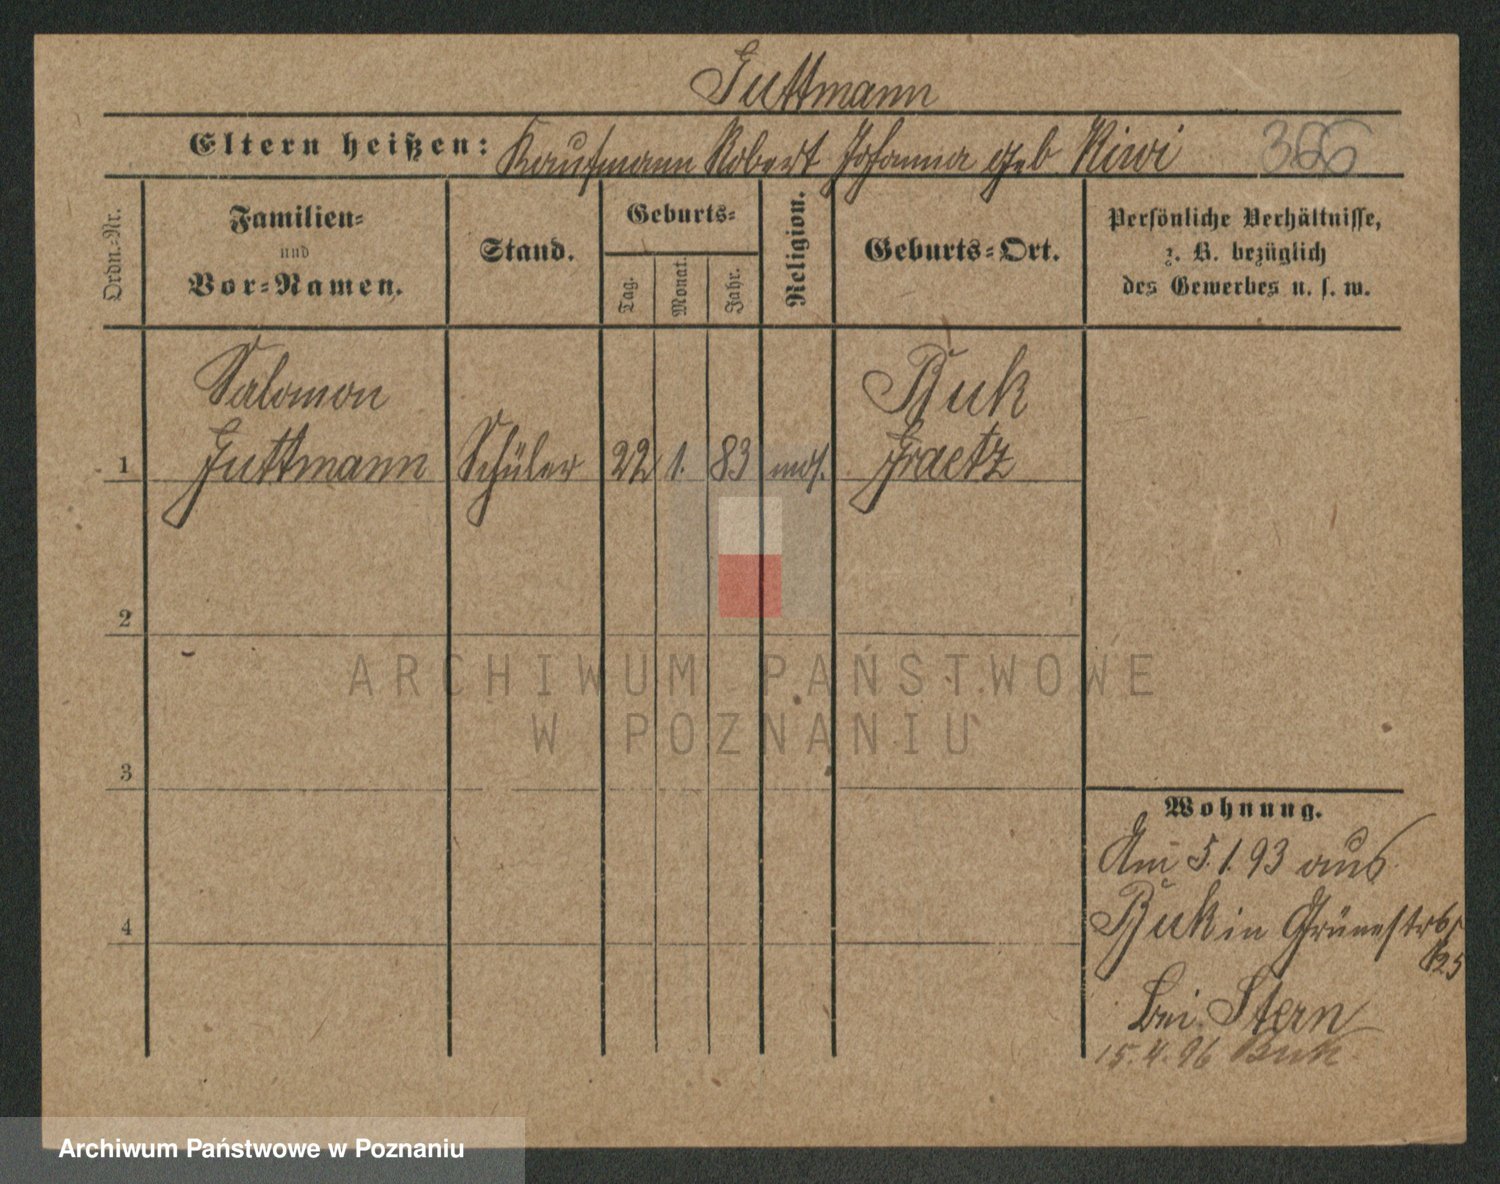 Guttmann
Eltern heißen: Kaufmann Robert Johanna geb Kiwi 366
Ordn.-Nr.
Familien-
und
Vor-Namen.
Stand.
Geburts-
Tag.
Monat.
Jahr.
Religion.
Geburts-Ort.
Persönliche Verhältnisse,
z. B. bezüglich
des Gewerbes u. s. w.
Salomon
Buk
1 Guttmann Schüler 22 1. 83 mos. Graetz
2
3
4
ARCHIWUM PAŃSTWOWE
W POZNANIU
Wohnung.
Am 5.1.93 aus
Buk in Grünestr
bei Stern
15.4.96 Buk
Archiwum Państwowe w Poznaniu